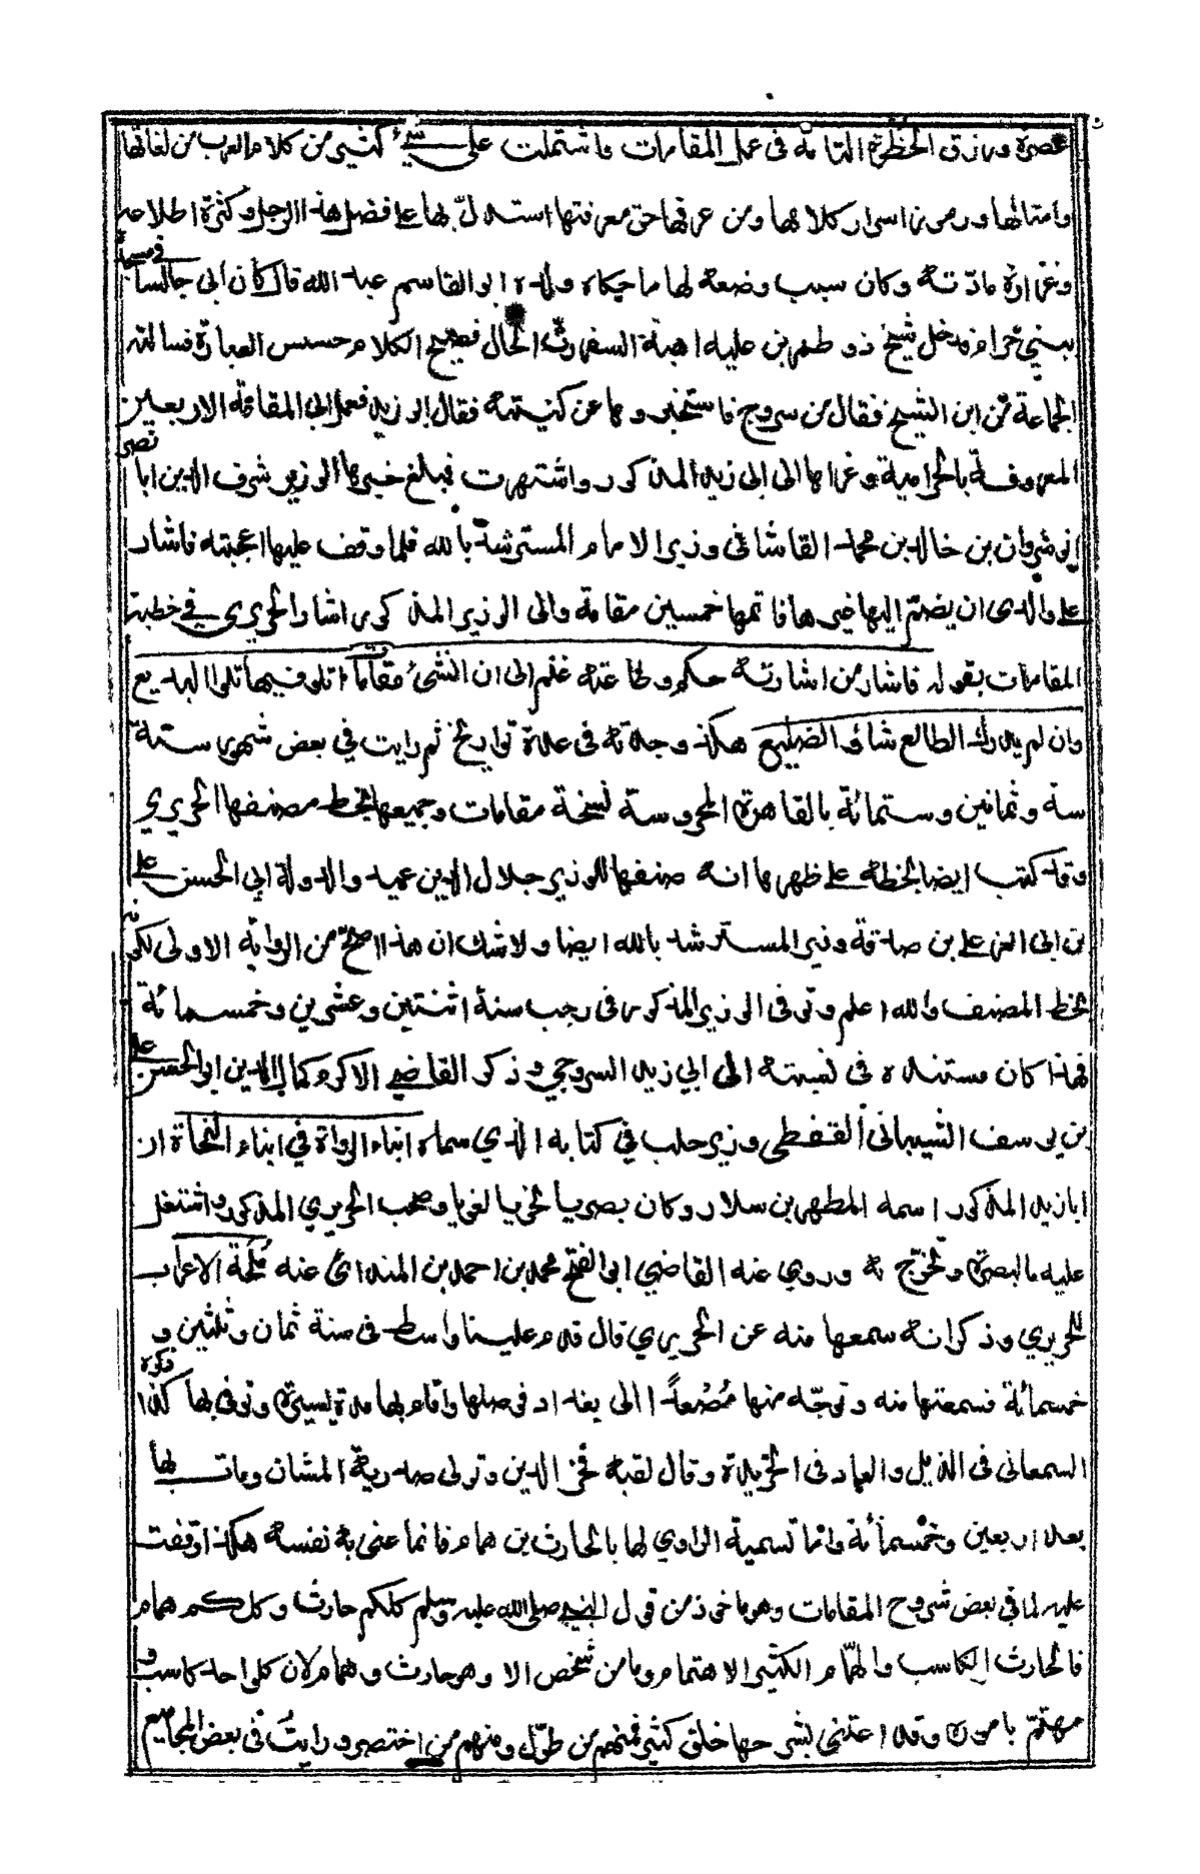 عصره ورزق الحظوة التامة فى عمل المقامات واشتملت على شيء كثير من كلام العرب من لغاتها
وامثالها ورموز اسرار كلامها ومن عرفها حق معرفتها استدل بها على فضل هذا الرجل وكثرة اطلاعه
وغزارة مادته وكان سبب وضعه لها ما حكاه ولده ابو القاسم عبد الله قال كان أبى جالسا فى مسجد
ببني حرام فدخل شيخ ذو طمرين عليه اهبة السفر رث الحال فصيح الكلام حسن العبارة فسالته
الجماعة من اين الشيخ فقال من سروج فاستخبروه عن كنيته فقال ابو زيد فعمل ابى المقامة الاربعين
المعروفة بالحرامية وعزاها الى ابى زيد المذكور واشتهرت فبلغ خبرها الوزير شرف الدين ابا نصر
انوشروان بن خالد بن محمد القاشانى وزير الامام المسترشد بالله فلما وقف عليها اعجبته فاشار
على والدى ان يضم اليها غيرها فاتمها خمسين مقامة والى الوزير المذكور اشار الحريرى في خطبة
المقامات بقوله فاشار من اشارته حكم وطاعته غنم الى ان انشئ مقامات اتلو فيها تلو البديع
وان لم يدرك الظالع شاو الضليع هكذا وجدته فى عدة تواريخ ثم رايت في بعض شهور سنة
ستة وثمانين وستمائة بالقاهرة المحروسة نسخة مقامات وجميعها بخط مصنفها الحريري
وقد كتب ايضا بخطه على ظهرها انه صنفها للوزير جلال الدين عميد الدولة ابي الحسن على
بن ابى العز على بن صدقة وزير المسترشد بالله ايضا ولا شك ان هذا اصح من الرواية الاولى لكونه
بخط المصنف والله اعلم وتوفى الوزير المذكور فى رجب سنة اثنتين وعشرين وخمسمائة
فهذا كان مستنده فى نسبته الى ابي زيد السروجي وذكر القاضي الاكرم كمال الدين ابو الحسن على
بن يوسف الشيبانى القفطي وزير حلب في كتابه الذي سماه انباء الرواة في ابناء النحاة ان
ابا زيد المذكور اسمه المطهر بن سلار وكان بصريا نحويا لغويا وصحب الحريري المذكور واشتغل
عليه بالبصرة وتخرج به وروي عنه القاضي ابو الفتح محمد بن احمد بن المندائ عنه ملحة الاعراب
للحريري وذكر انه سمعها منه عن الحريري قال قدم علينا واسط فى سنة ثمان وثلثين و
خمسمائة فسمعتها منه وتوجه منها مصعدا الى بغداد فوصلها واقام بها مدة يسيرة وتوفى بها كذا ذكره
السمعانى فى الذيل والعماد فى الخريدة وقال لقبه فخر الدين وتولى صدرية المشان ومات بها
بعد اربعين وخمسمائة واما تسمية الراوي لها بالحارث بن همام فانما عنى به نفسه هكذا وقفت
عليه فى بعض شروح المقامات وهو ماخوذ من قول النبي صلى الله عليه وسلم كلكم حارث وكلكم همام
فالحارث الكاسب والهمام الكثير الاهتمام وما من شخص الا وهو حارث وهمام لان كل احد كاسب و
مهتم باموره وقد اعتنى بشرحها خلق كثير فمنهم من طول ومنهم من اختصر ورايت فى بعض المجاميع